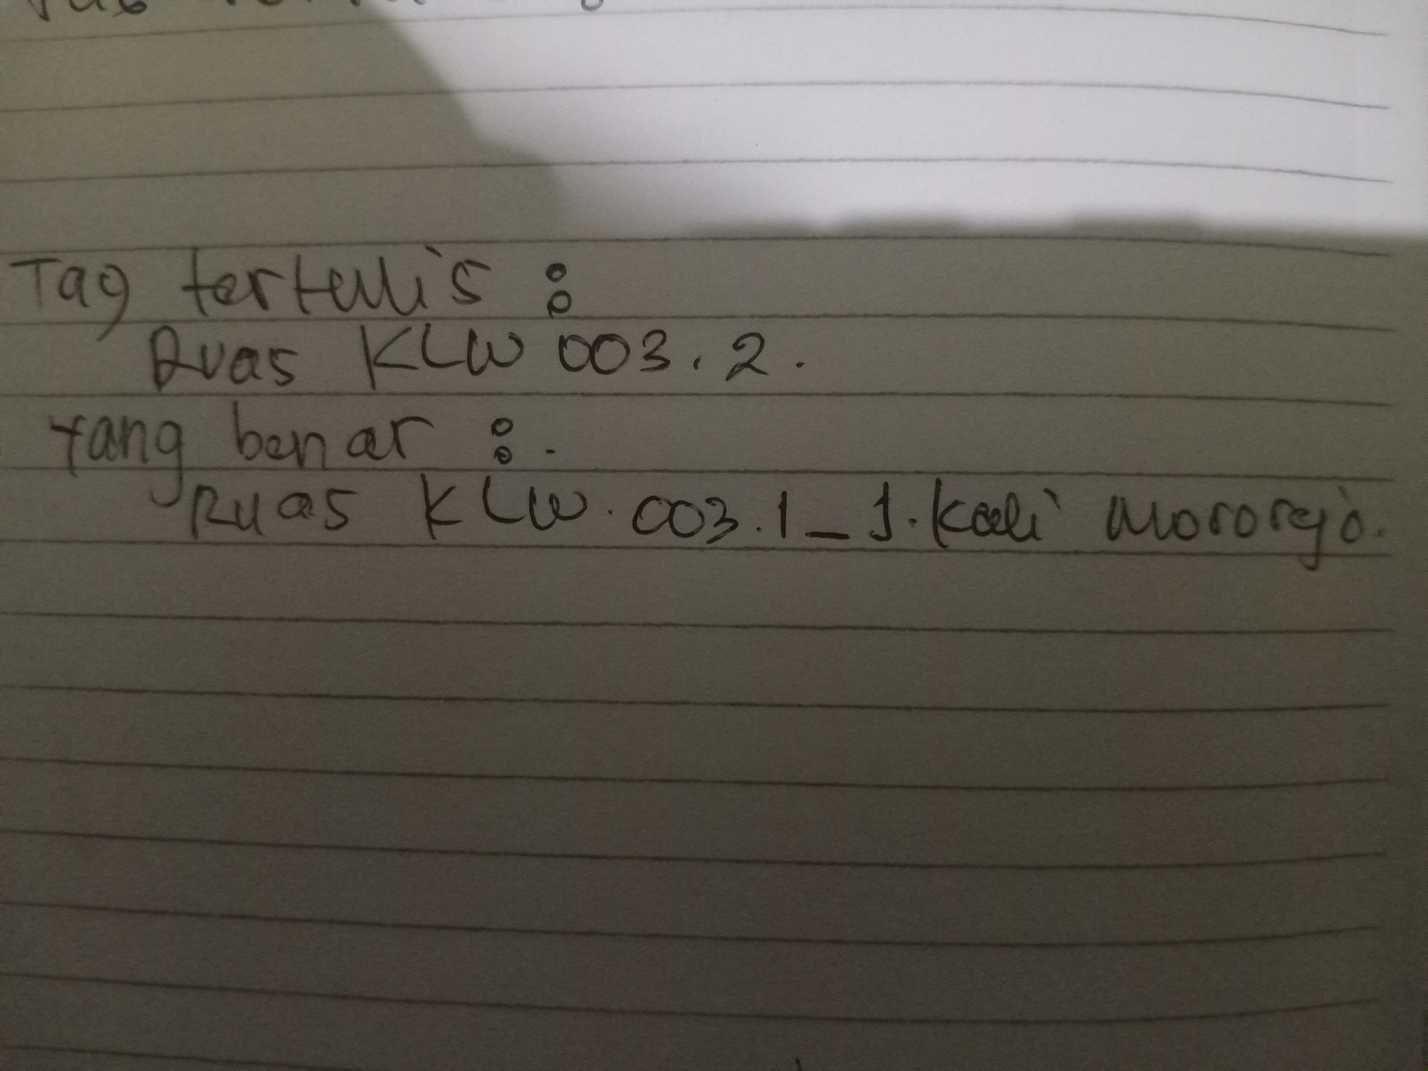 Tag tertulis :
Ruas KLW 003.2.
Yang benar :.
Ruas KLW.003.1_J.Kali Mororejo.